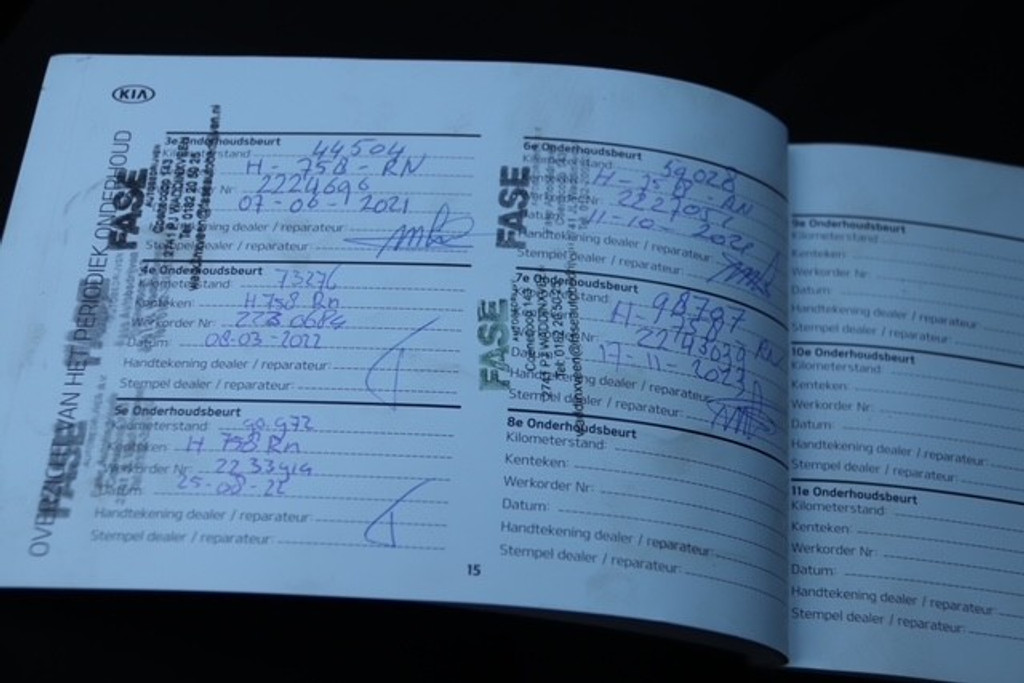 KIA
OVERZICHT VAN HET PERIODIEK ONDERHOUD
FASE
3e Onderhoudsbeurt
Kilometerstand: 44504
H-758-RN
Nr: 2224696
2021
Handtekening dealer / reparateur:
Stempel dealer / reparateur:
4e Onderhoudsbeurt
Kilometerstand: 73276
Kenteken: H 758 Rn
Werkorder Nr: 2230684
Datum: 08-03-2022
Handtekening dealer / reparateur:
Stempel dealer / reparateur:
5e Onderhoudsbeurt
Kilometerstand: 90.972
Kenteken: H 758 Rn
Werkorder Nr:
Datum: 25-08-22
Handtekening dealer / reparateur:
Stempel dealer / reparateur:
FASE
15
FASE
6e Onderhoudsbeurt
Kilometerstand: 59028
H-758-RN
Werkorder Nr:
Datum: 11-10-2021
Handtekening dealer / reparateur:
Stempel dealer / reparateur:
FASE
Coenecoop 143
2741 PJ WADDINXVEEN
Tel: 0182 20 50 25
7e Onderhoudsbeurt
98797
H-758-RN
17-11-2023
Handtekening dealer / reparateur:
Stempel dealer / reparateur:
8e Onderhoudsbeurt
Kilometerstand:
Kenteken:
Werkorder Nr:
Datum:
Handtekening dealer / reparateur:
Stempel dealer / reparateur:
9e Onderhoudsbeurt
Kilometerstand:
Kenteken:
Werkorder Nr:
Datum:
Handtekening dealer / reparateur:
Stempel dealer / reparateur:
10e Onderhoudsbeurt
Kilometerstand:
Kenteken:
Werkorder Nr:
Datum:
Handtekening dealer / reparateur:
Stempel dealer / reparateur:
11e Onderhoudsbeurt
Kilometerstand:
Kenteken:
Werkorder Nr:
Datum:
Handtekening dealer / reparateur:
Stempel dealer / reparateur: